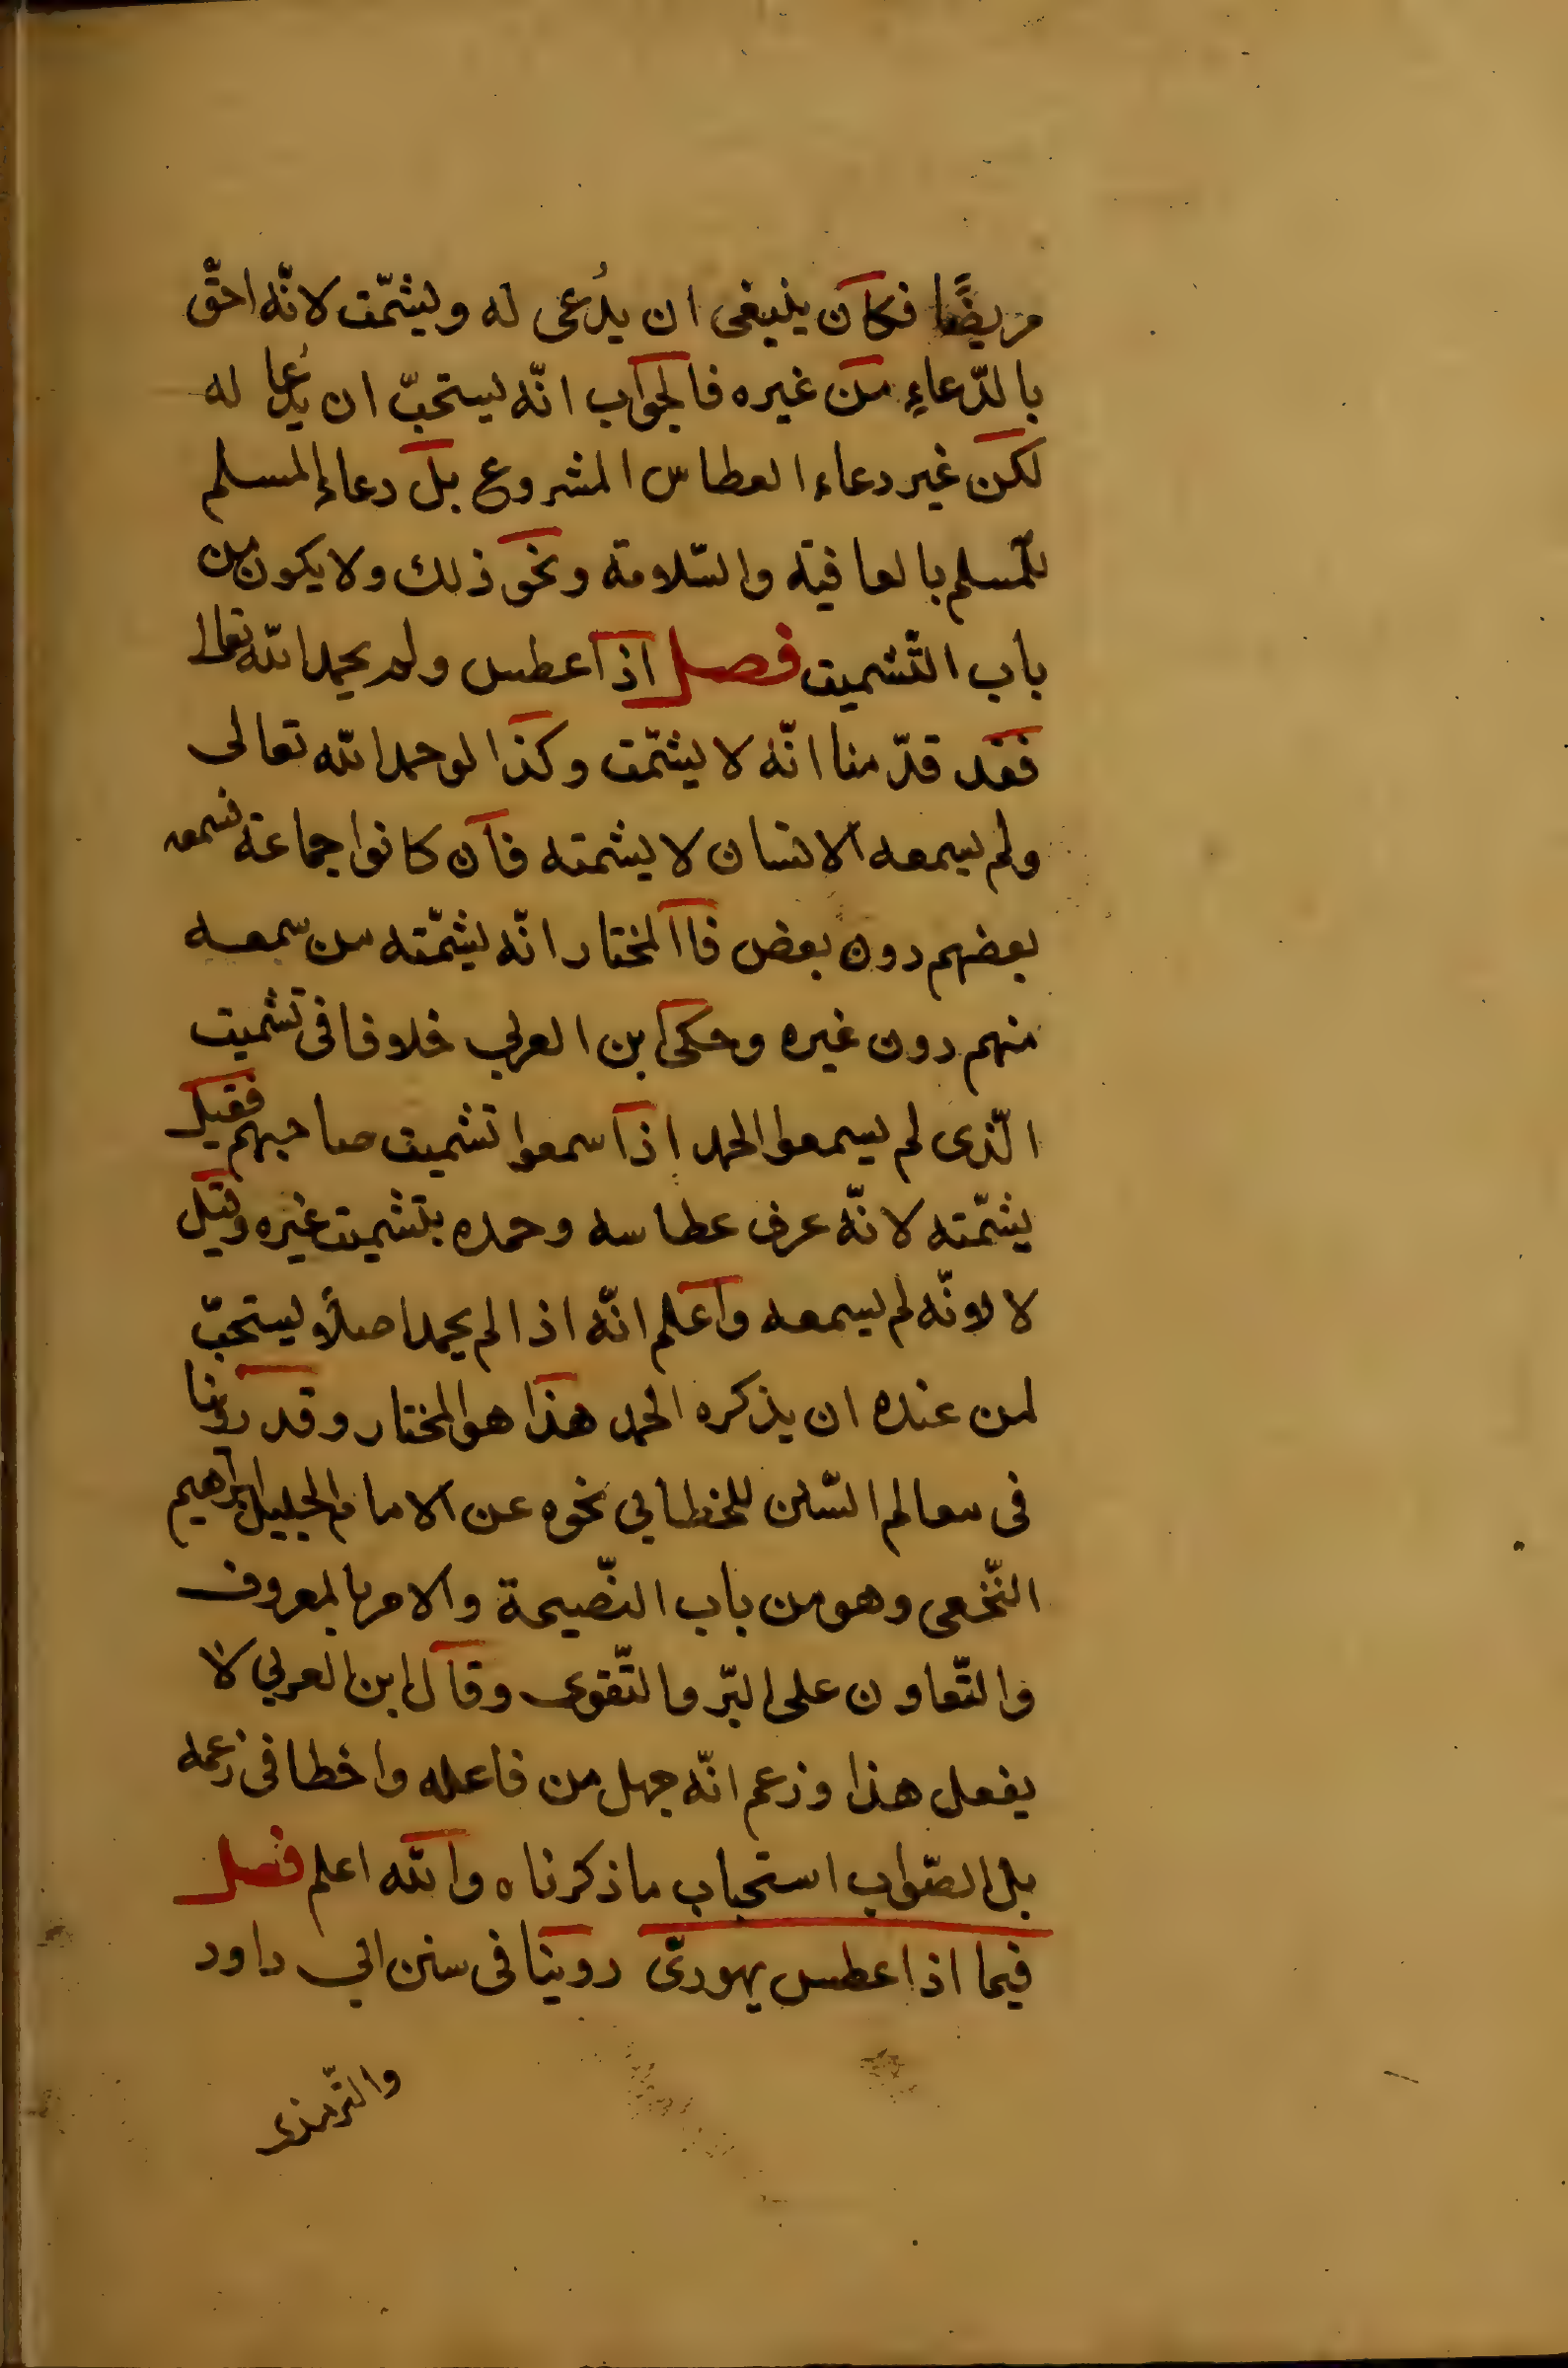 مريضًا فكان ينبغى ان يدُعى له ويشمّت لانّه احقّ
بالدّعاءِ من غيره فالجواب انّه يستحبّ ان يُدعا له
لكن غير دعاء العطاس المشروع بل دعاء المسلم
للمسلم بالعافية والسّلامة ونحو ذلك ولا يكون من
باب التّشميت فصل اذا عطس ولم يحمد اللّه تعالى
فقد قدّمنا انّه لا يشمّت وكذا لو حمد اللّه تعالى
ولم يسمعه الانسان لا يشمته فان كانوا جماعة فسمعه
بعضهم دون بعض فاالمختار انّه يشمّته من سمعه
منهم دون غيره وحكى ابن العربي خلافا فى تشميت
الّذى لم يسمعوا الحمد اذا سمعوا تشميت صاحبهم فقيل
يشمّته لانّه عرف عطاسه وحمده بتشميت غيره وقيل
لا لانّه لم يسمعه واعلم انّه اذا لم يحمد اصلاً يستحبّ
لمن عنده ان يذكره الحمد هذا هو المختار وقد روينا
فى معالم السّنن للخطابي نحوه عن الامام الجليل ابراهيم
النّخعى وهو من باب النّصيحة والامر بالمعروف
والتّعاون على البرّ والتّقوى وقال ابن العربي لا
يفعل هذا وزعم انّه جهل من فاعله واخطا فى زعمه
بل الصّواب استحباب ما ذكرناه واللّه اعلم فصل
فيما اذا عطس يهودىّ روينا فى سنن ابي داود
والتّرمذى